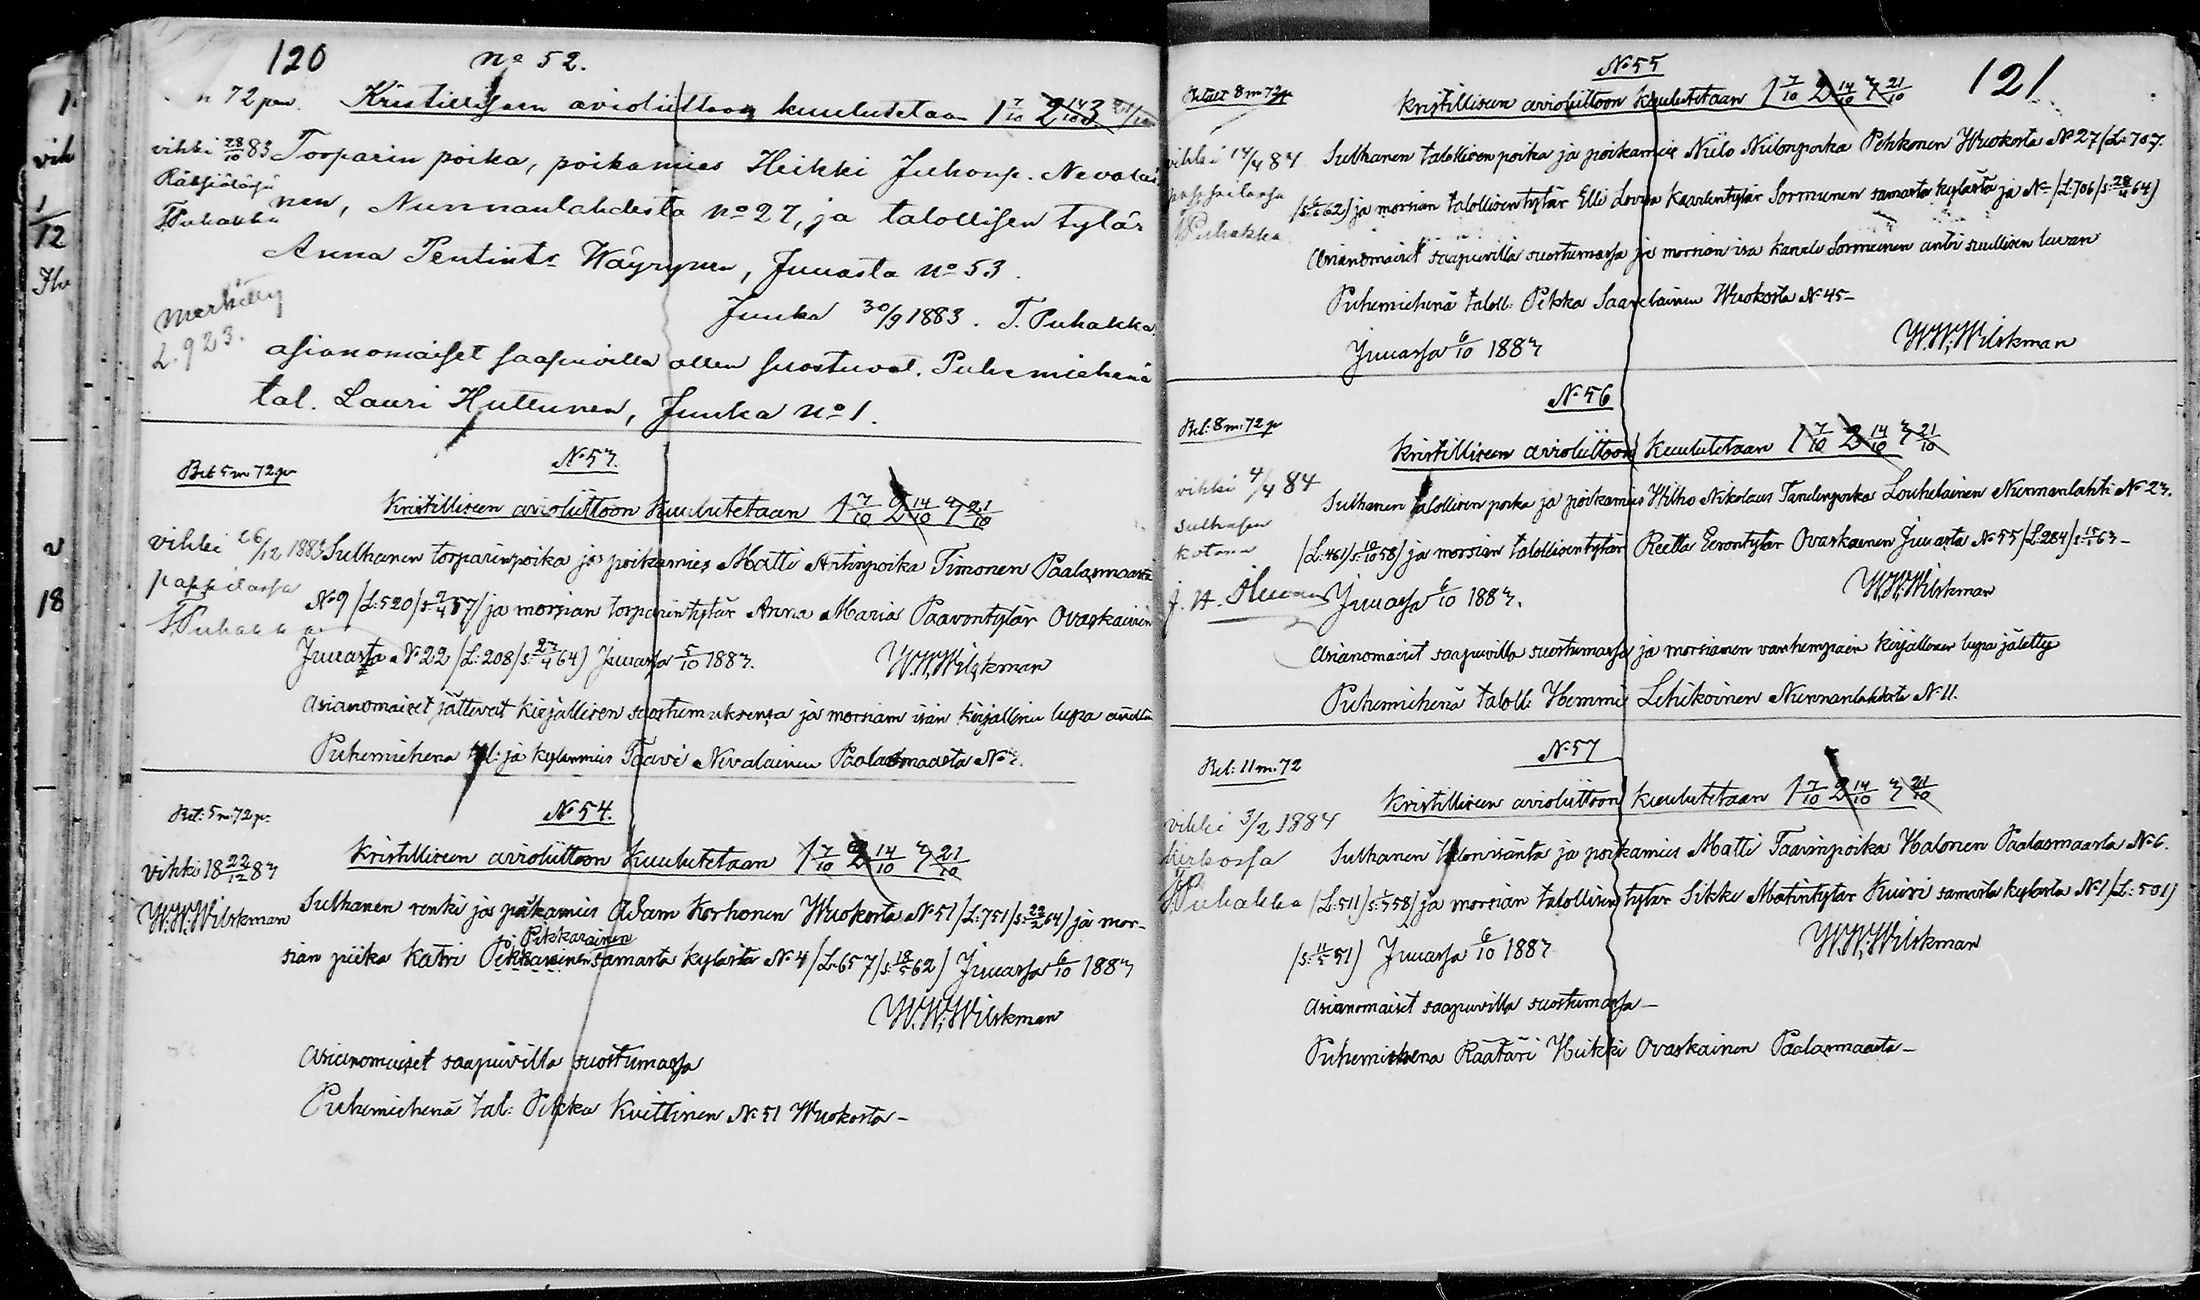 120
No 52.
72 pen. Kristilliseen avioliittoon kuulutetaan 1 7/10 2 14/10 3 21/10
vihki 28/10 83
Räksjälässä
T. Puhakka
Torparin poika, poikamies Heikki Juhonp. Nevalai-
nen, Nunnanlahdesta no 27, ja talollisen tytär
Anna Pentints. Wäyrynen, Juuasta no 53.
Juuka 30/9 1883. T. Puhakka.
merkitty
L. 923.
asianomaiset saapuvilla ollen suostuvat. Puhemiehenä
tal. Lauri Huttunen, Juuka No 1.
Bet 5 m 72 p
No 53.
Kristilliseen avioliittoon kuulutetaan 1 7/10 2 14/10 3 21/10
vihki 26/12 1883
pappilassa
T. Puhakka
Sulhanen torparinpoika ja poikamies Matti Antinpoika Timonen Paalasmaasta
No 9 /L: 520/ s: 9/4 57/ ja morsian torparintytär Anna Maria Paavontytär Ovaskainen
Juuasta No 22 /L: 208/ s: 23/4 64) Juuassa 5/10 1883.
W.W. Wilskman
Asianomaiset jättivat kirjallisen suostumuksensa ja morsiam isän kirjallinen lupa
Puhemiehenä tal: ja kylanmies Taavi Nevalainen Paalasmaasta No
Bet: 5 m 72 p:
No 54.
Kristilliseen avioliittoon kuulutetaan 1 7/10 2 14/10 3 21/10
vihki 18 22/12 83
W.W. Wilskman
Sulhanen renki ja poikamies Adam Korhonen Wuokosta No 51 /L: 751/ s: 22/2 64) ja mor-
sian piika Katri Pikkarainen samasta kylästä No 4 /L: 657/ s: 18/5 62) Juuassa 6/10 1883
Pikkarainen
W.W. Wilskman
Asianomaiset saapuvilla suostumassa
Puhemiehenä tal: Pekka Kuittinen No 51 Wuokosta –
121
No 55
8 m 72 p
Kristilliseen avioliittoon kuulutetaan 1 7/10 2 14/10 3 21/10
vihki 14/4 84
pappilassa
T. Puhakka
Sulhanen talollisen poika ja poikamies Niilo Niilonpoika Pehkonen Wuokosta No 27 /L: 707.
62) ja morsian talollisen tytär Elli Lovisa Kaarlentytär Sormunen samasta kylästä ja No – /L: 706/ s: 28/4 64)
Asianomaiset saapuvilla suostumassa ja morsian isa Kaarle Sormunen antoi suullisen luvan
Puhemiehenä taloll: Pekka Saarelainen Wuokosta No 45 –
Juuassa 6/10 1883
W.W. Wilskman
No 56
Bet: 8 m: 72 p
Kristilliseen avioliittoon kuulutetaan 1 7/10 2 14/10 3 21/10
vihki 4/4 84
sulhasen
kotona
Sulhanen talollisen poika ja poikamies Wilho Nikolaus Louhelainen Nunnanlahti No 23.
/L: 461/ s: 10/10 58/ ja morsian talollisentytär Reetta Eerontytär Ovaskainen Juuasta No 55 /L: 284/ 63 –
Juuassa 6/10 1883.
W.W. Wilskman
Asianomaiset saapuvilla suostumassa ja morsiamen vanhempain kirjallinen lupa jätetty
Puhemiehenä taloll: Hemmi Lehikoinen Nunnanlahdesta No 11.
No 57
Bet: 11 m: 72
Kristilliseen avioliittoon kuulutetaan 1 7/10 2 14/10 3 21/10
vihki 3/2 1884
kirkossa
T. Puhakka
Sulhanen talonisäntä ja poikamies Matti Taavinpoika Halonen Paalasmaasta No 6.
/L: 511/ 58/ ja morsian talollisen tytär Sikke Matintytär Kuivi samasta kylästä No 1 /L: 501)
51) Juuassa 6/10 1883
W.W. Wilskman
Asianomaiset saapuvilla suostumassa –
Puhemiehena Räätäri Heikki Ovaskainen Paalasmaasta –